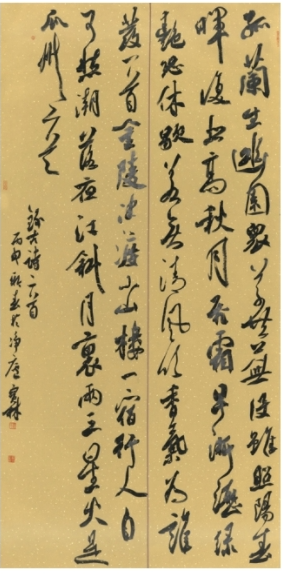 孤蘭生幽園眾草共蕪沒雖照陽春
暉復悲高秋月飛霜早淅瀝綠
艷恐休歇若無清風吹香氣為誰
發 首金陵津渡小山樓一宿行人自
可愁潮落夜江斜月裏兩三星火是
瓜州
錄古詩二首
丙申新春於淨廬